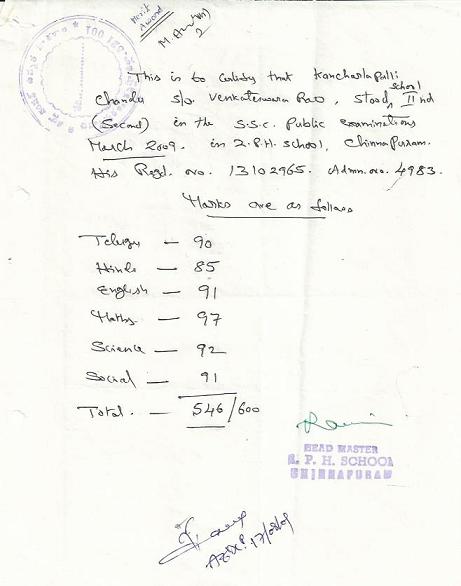 Merit
Award
This is to certify that Kancharlapalli
Chandu s/o. Venkateswara Rao, stood, IInd
school
(Second) in the S.S.C. Public Examinations
March 2009. in Z.P.H. School, Chinnapuram.
His Regd. no. 13102965. Admn. no. 4983.
Marks are as follows
Telugu — 90
Hindi — 85
English — 91
Maths — 97
Science — 92
Social — 91
Total. — 546/600
HEAD MASTER
P. H. SCHOOL
CHINNAPURAM